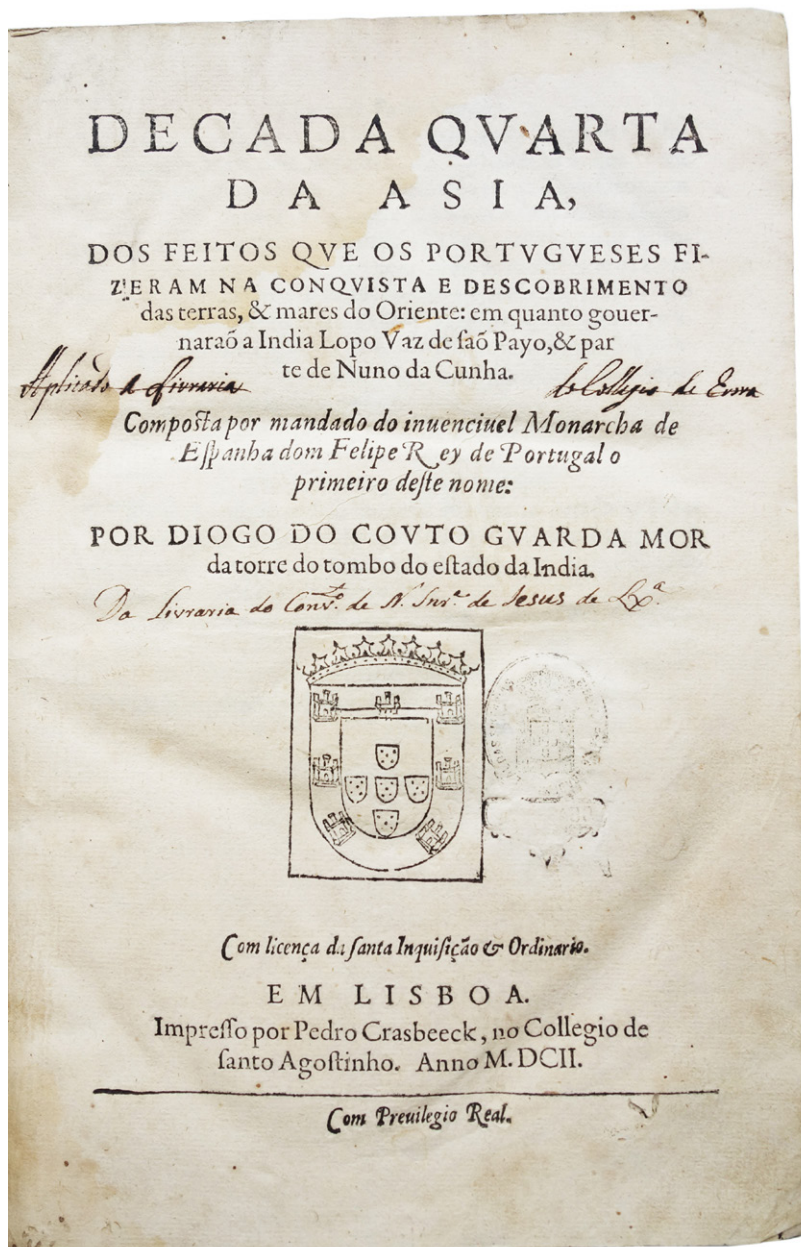 DECADA QVARTA
DA ASIA,
DOS FEITOS QVE OS PORTVGVESES FI-
ZERAM NA CONQVISTA E DESCOBRIMENTO
das terras, & mares do Oriente: em quanto gouer-
naraõ a India Lopo Vaz de ſaõ Payo, & par
te de Nuno da Cunha.
Aplicado a Livraria do Collegio de
Compoſta por mandado do inuenciuel Monarcha de
Eſpanha dom Felipe Rey de Portugal o
primeiro deſte nome:
POR DIOGO DO COVTO GVARDA MOR
da torre do tombo do eſtado da India.
Da Livraria do Conv.to de N. Snr.a de Jesus de Lx.a
Com licença da ſanta Inquiſição & Ordinario.
EM LISBOA.
Impreſſo por Pedro Crasbeeck, no Collegio de
ſanto Agoſtinho. Anno M. DCII.
Com Preuilegio Real.